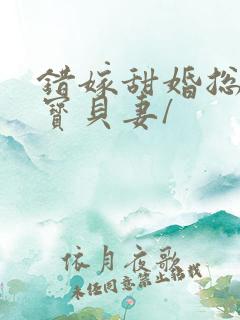 错嫁甜婚总
宝贝妻/
依月夜歌
未经同意禁止转载